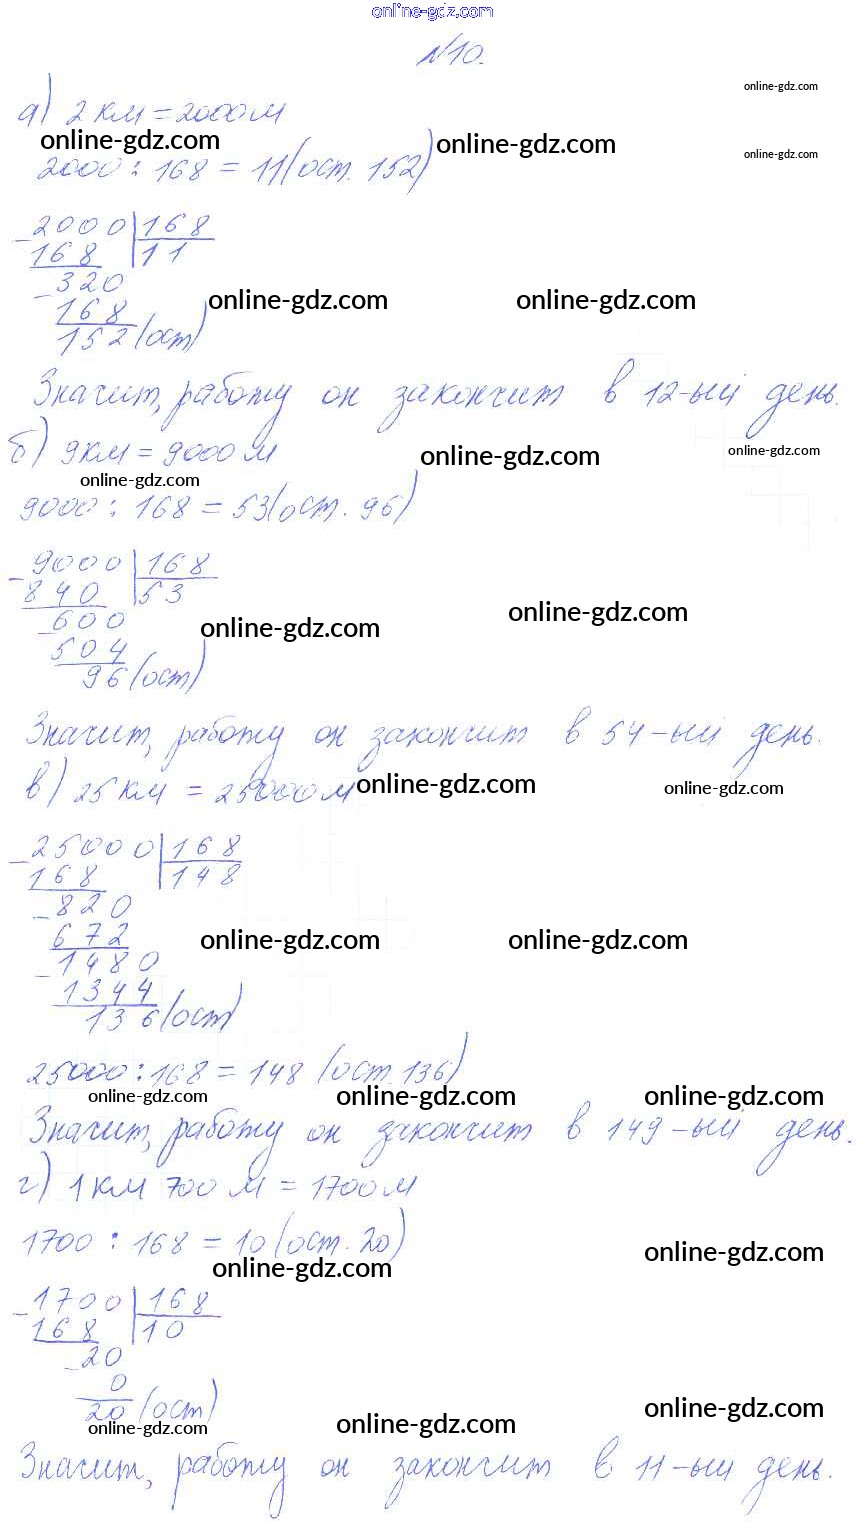 online-gdz.com
№10.
online-gdz.com
а) 2 км = 2000 м
online-gdz.com online-gdz.com online-gdz.com
2000 : 168 = 11 (ост. 152)
2000 | 168
168 | 11
320
online-gdz.com online-gdz.com
168
152 (ост)
Значит, работу он закончит в 12-ый день.
б) 9 км = 9000 м
online-gdz.com online-gdz.com
online-gdz.com
9000 : 168 = 53 (ост. 96)
9000 | 168
840 | 53
600
online-gdz.com online-gdz.com
504
96 (ост)
Значит, работу он закончит в 54-ый день.
в) 25 км = 25000 м
online-gdz.com online-gdz.com
25000 | 168
168 | 148
820
672
online-gdz.com online-gdz.com
1480
1344
136 (ост)
25000 : 168 = 148 (ост. 136)
online-gdz.com online-gdz.com online-gdz.com
Значит, работу он закончит в 149-ый день.
г) 1 км 700 м = 1700 м
1700 : 168 = 10 (ост. 20)
online-gdz.com online-gdz.com
1700 | 168
168 | 10
20
0
20 (ост)
online-gdz.com online-gdz.com online-gdz.com
Значит, работу он закончит в 11-ый день.